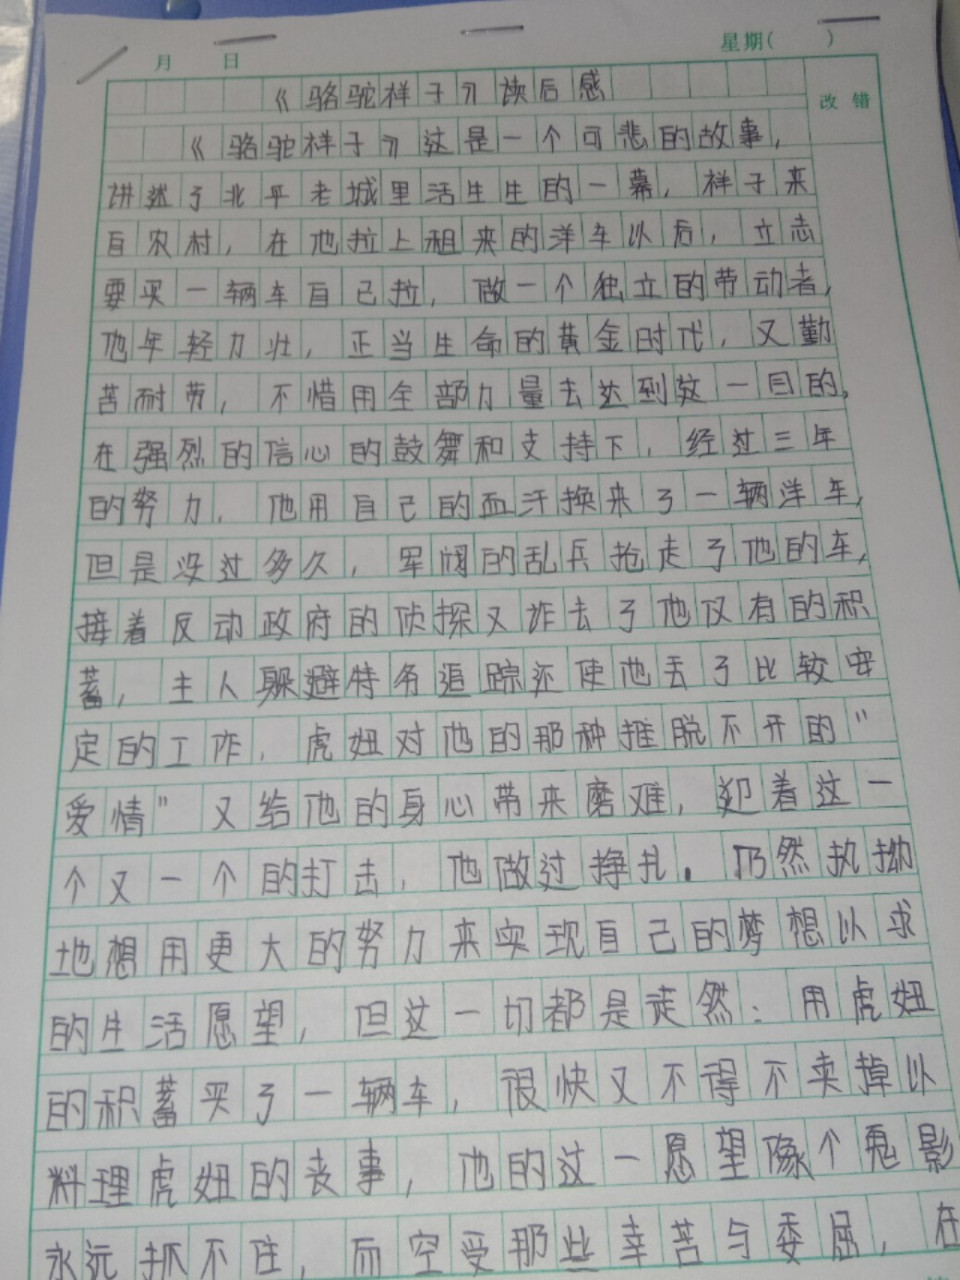 月 日 星期( )
《骆驼祥子》读后感
改 错
《骆驼祥子》这是一个可悲的故事，
讲述了北平老城里活生生的一幕，祥子来
自农村，在他拉上租来的洋车以后，立志
要买一辆车自己拉，做一个独立的劳动者，
他年轻力壮，正当生命的黄金时代，又勤
苦耐劳，不惜用全部力量去达到这一目的。
在强烈的信心的鼓舞和支持下，经过三年
的努力，他用自己的血汗换来了一辆洋车，
但是没过多久，军阀的乱兵抢走了他的车，
接着反动政府的侦探又诈去了他仅有的积
蓄，主人躲避特务追踪还使他丢了比较安
定的工作，虎妞对他的那种推脱不开的“
爱情”又给他的身心带来磨难，迎着这一
个又一个的打击，他做过挣扎．仍然执拗
地想用更大的努力来实现自己的梦想以求
的生活愿望，但这一切都是徒然：用虎妞
的积蓄买了一辆车，很快又不得不卖掉以
料理虎妞的丧事，他的这一愿望像个鬼影
永远抓不住，而空受那些幸苦与委屈，在